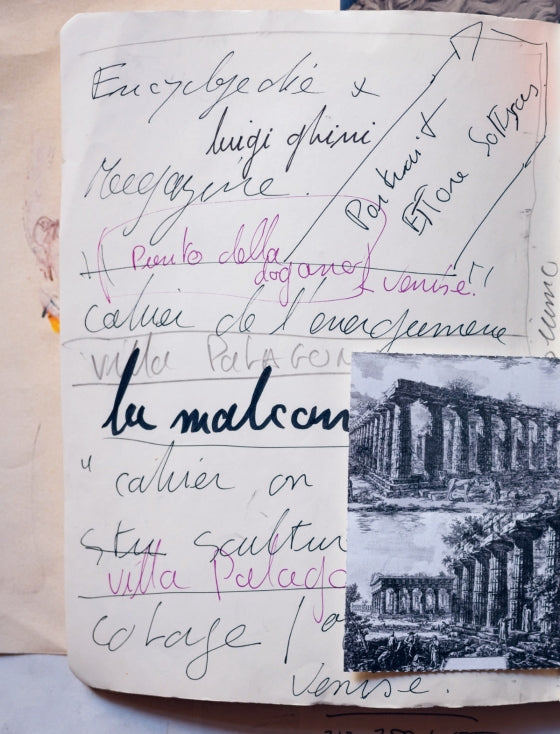 Encyclopedie x
luigi ghirri
Magazine.
Portrait
Ettore Sottsass
Punto della
dogana
venise.
cahier de l'energumene
villa PALAGON
la malcon
" cahier on
stu scultur
villa Palago
Colage / a
Venise.